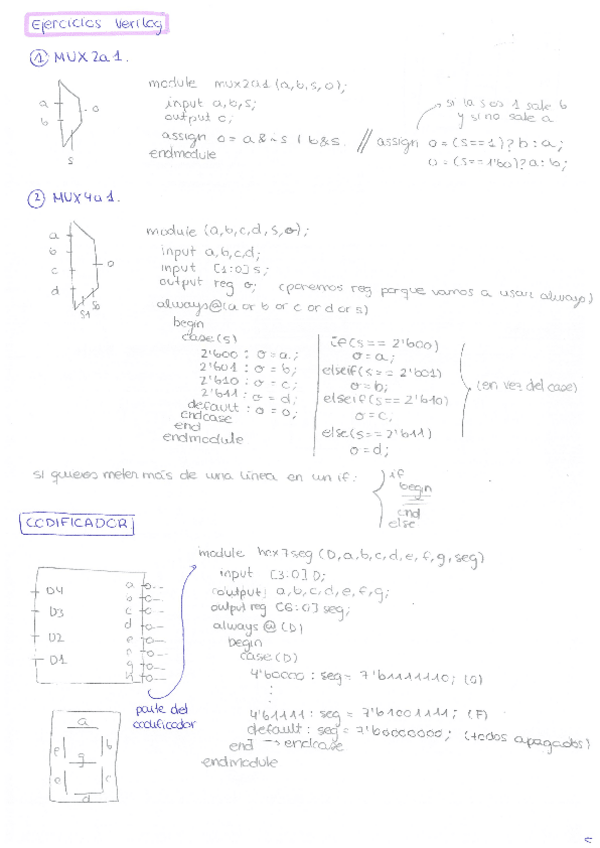 Ejercicios Verilog
① MUX 2a1.
a
b
o
s
module mux2a1 (a,b,s,o);
input a,b,s;
output o;
assign o = a&~s | b&s. // assign o = (s==1)? b : a;
o = (s==1'b0)? a: b;
endmodule
si la s es 1 sale b
y si no sale a
② MUX 4a1.
a
b
c
d
o
S1 S0
module (a,b,c,d,s,o);
input a,b,c,d;
input [1:0] s;
output reg o; (ponemos reg porque vamos a usar always)
always@(a or b or c or d or s)
begin
case(s)
2'b00 : o = a;
2'b01 : o = b;
2'b10 : o = c;
2'b11 : o = d;
default : o = o;
endcase
end
endmodule
if(s == 2'b00)
o = a;
elseif(s == 2'b01)
o = b;
elseif(s == 2'b10)
o = c;
else(s == 2'b11)
o = d;
(en vez del case)
si quieres meter más de una línea en un if:
if
begin
end
else
CODIFICADOR
D4
D3
D2
D1
a
b
c
d
e
g
parte del
codificador
a
b
g
e
c
d
module hex7seg (D,a,b,c,d,e,f,g,seg)
input [3:0] D;
output a,b,c,d,e,f,g;
output reg [6:0] seg;
always @ (D)
begin
case(D)
4'b0000 : seg = 7'b1111110; (0)
⋮
4'b1111 : seg = 7'b1001111; (F)
default : seg = 7'b0000000; (todos apagados)
end → endcase
endmodule
5